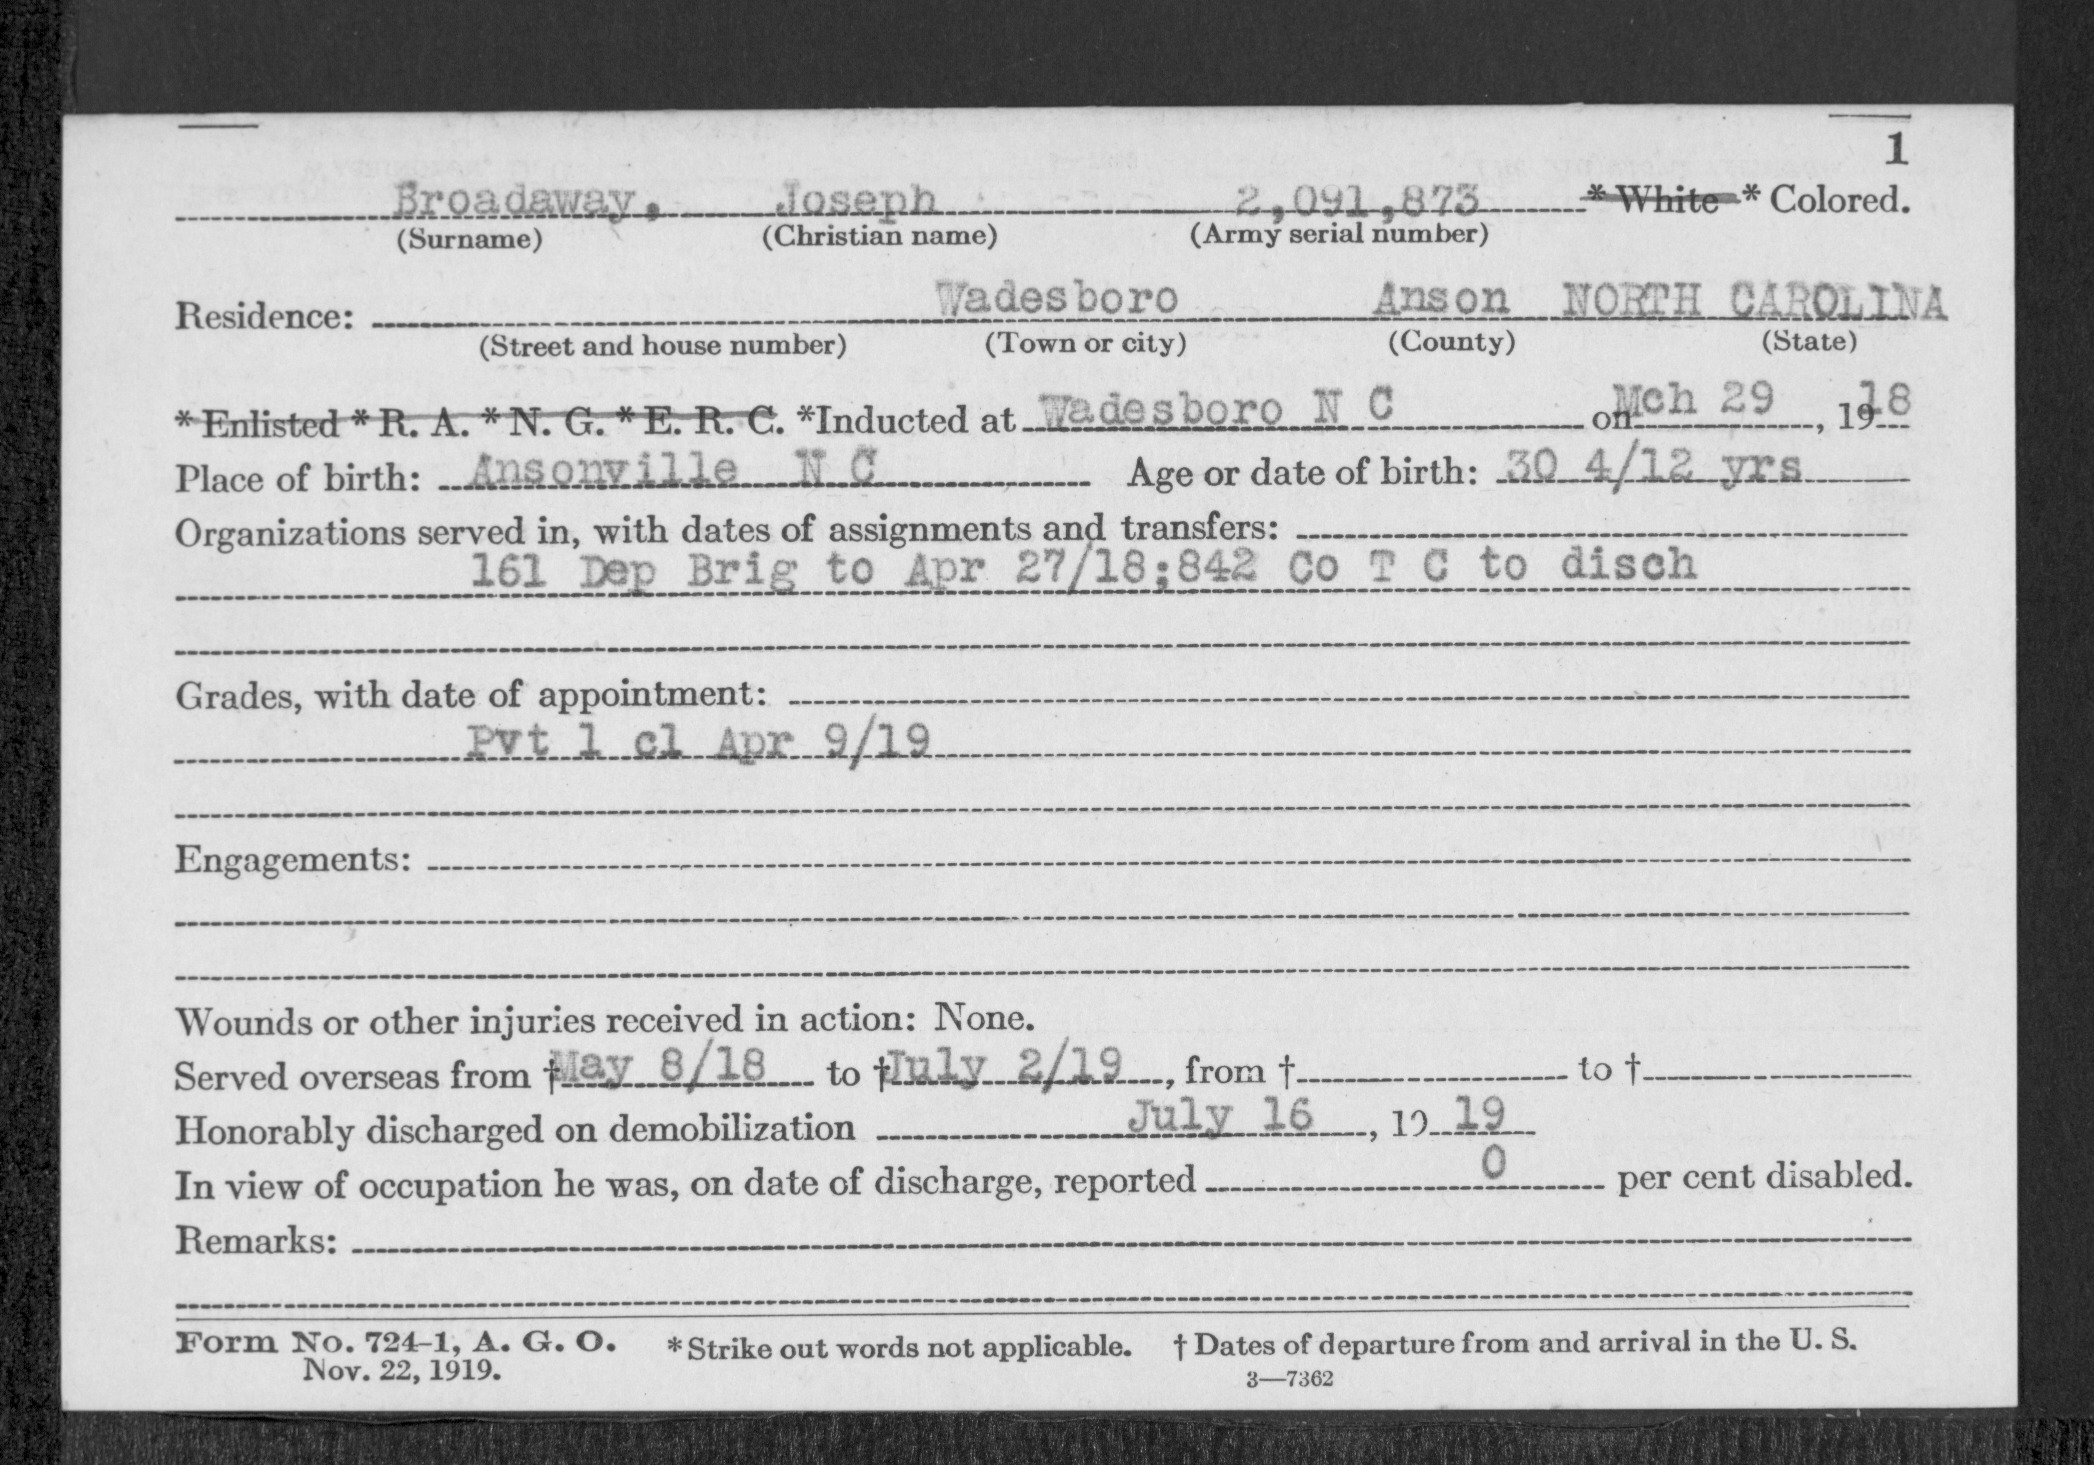 1
Broadaway, Joseph 2,091,873 * White * Colored.
(Surname) (Christian name) (Army serial number)
Wadesboro Anson NORTH CAROLINA
Residence:
(Street and house number) (Town or city) (County) (State)
* Enlisted * R. A. * N. G. * E. R. C. *Inducted at Wadesboro N C on Mch 29, 1918
Place of birth: Ansonville N C Age or date of birth: 30 4/12 yrs
Organizations served in, with dates of assignments and transfers:
161 Dep Brig to Apr 27/18;842 Co T C to disch
Grades, with date of appointment:
Pvt 1 cl Apr 9/19
Engagements:
Wounds or other injuries received in action: None.
Served overseas from † May 8/18 to † July 2/19, from † to †
Honorably discharged on demobilization July 16, 19 19
In view of occupation he was, on date of discharge, reported 0 per cent disabled.
Remarks:
Form No. 724-1, A. G. O. * Strike out words not applicable. † Dates of departure from and arrival in the U. S.
Nov. 22, 1919. 3—7362